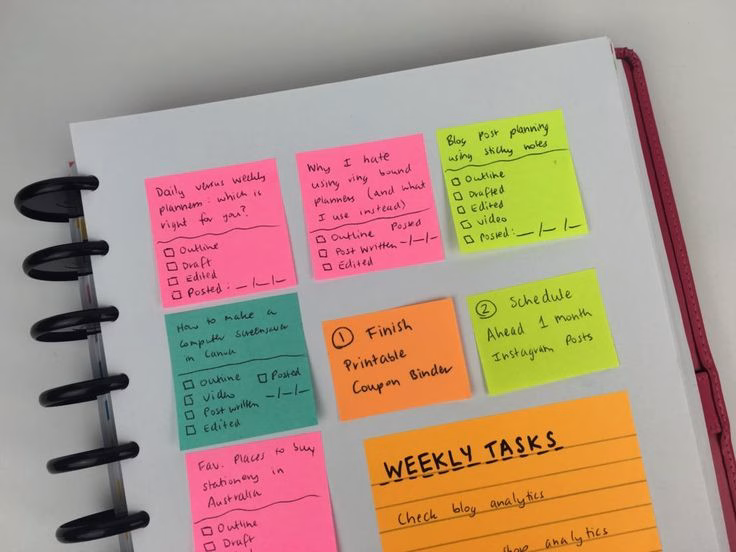 Daily versus weekly
planners: which is
right for you?
□ Outline
□ Draft
□ Edited
□ Posted: _/_/_
Why I hate
using ring bound
planners (and what
I use instead)
□ Outline Posted
□ Post Written _/_/_
□ Edited
Blog post planning
using sticky notes
□ Outline
□ Drafted
□ Edited
□ Video
□ Posted: _/_/_
How to make a
computer screensaver
in Canva
□ Outline □ Posted
□ Video _/_/_
□ Post written
□ Edited
① Finish
Printable
Coupon Binder
② Schedule
Ahead 1 month
Instagram Posts
Fav. Places to buy
stationery in
Australia
□ Outline
□ Draft
WEEKLY TASKS
Check blog analytics
analytics